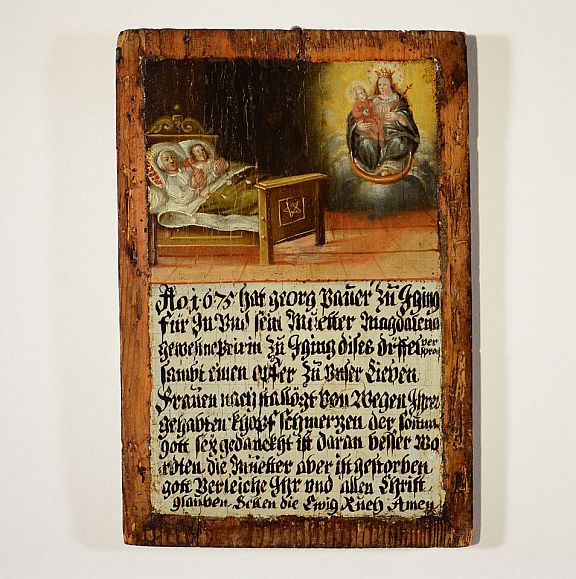 Ao 1675 hat georg Paŭer Zŭ Jging
für Jn Vnd sein Mŭetter Magdalena
geweßne Peirin Zŭ Jging dises däffel ver
sambt einen opfer Zŭ Vnser Lieben
Frauen nach von Wegen Jhrer
gehabten Khopf schmerzen der sohn
gott seÿ gedanckht ist daran besser Wo
rdten die Mŭetter aber ist gestorben
gott Verleiche Jhr vnd allen Christ
glauben Sellen die Ewig Rŭeh Amen